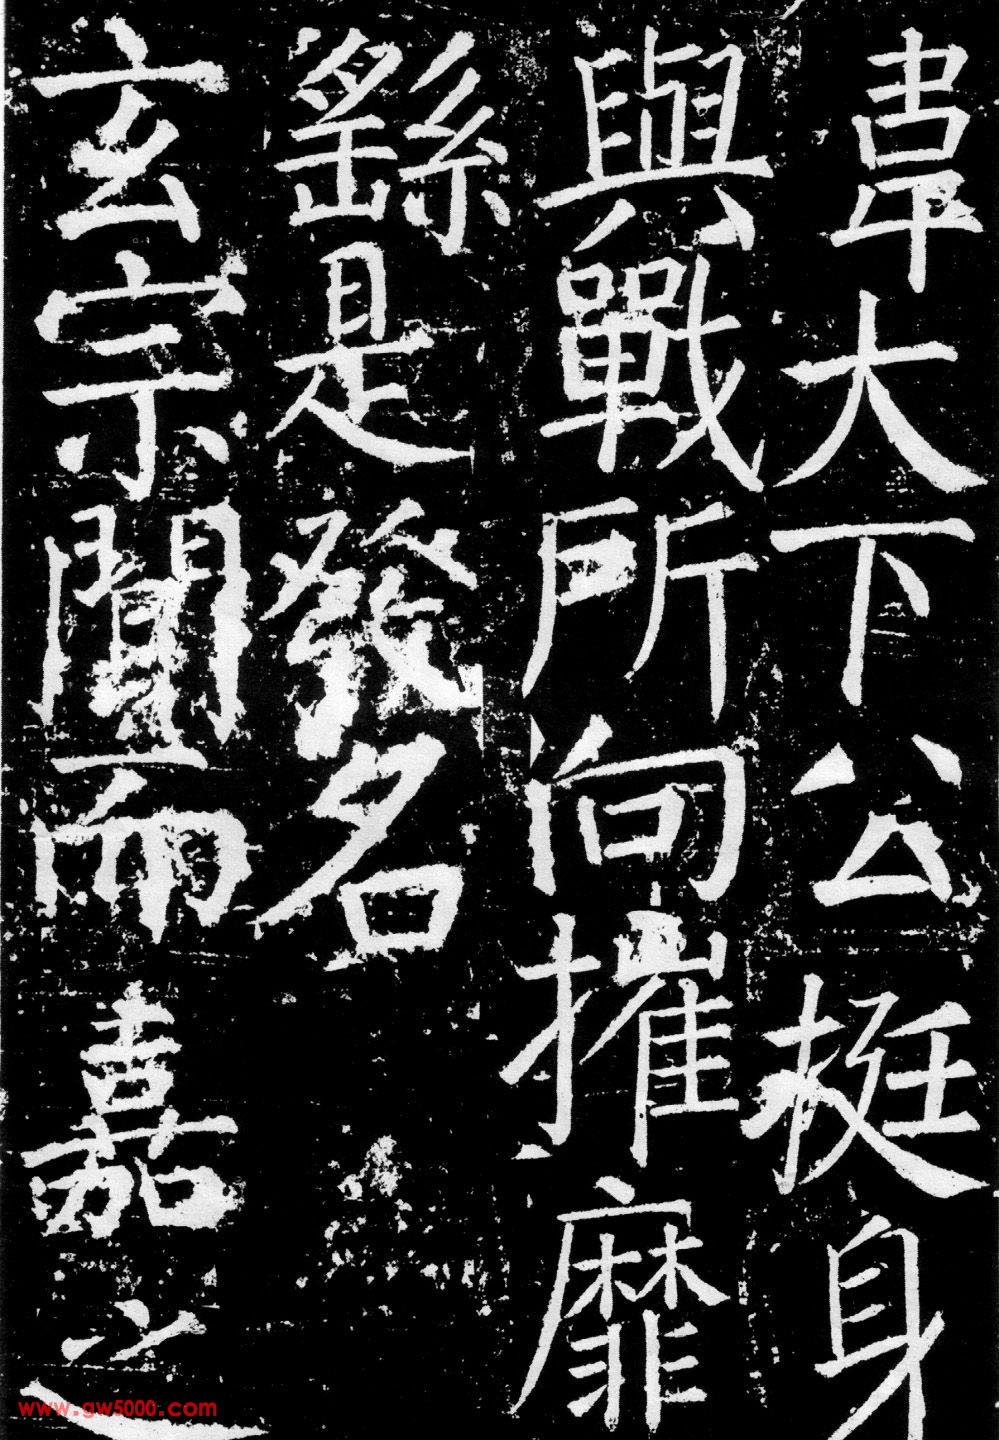 韋大下公挺身
與戰所向摧靡
繇是發名
玄宗聞而嘉之
www.gw5000.com